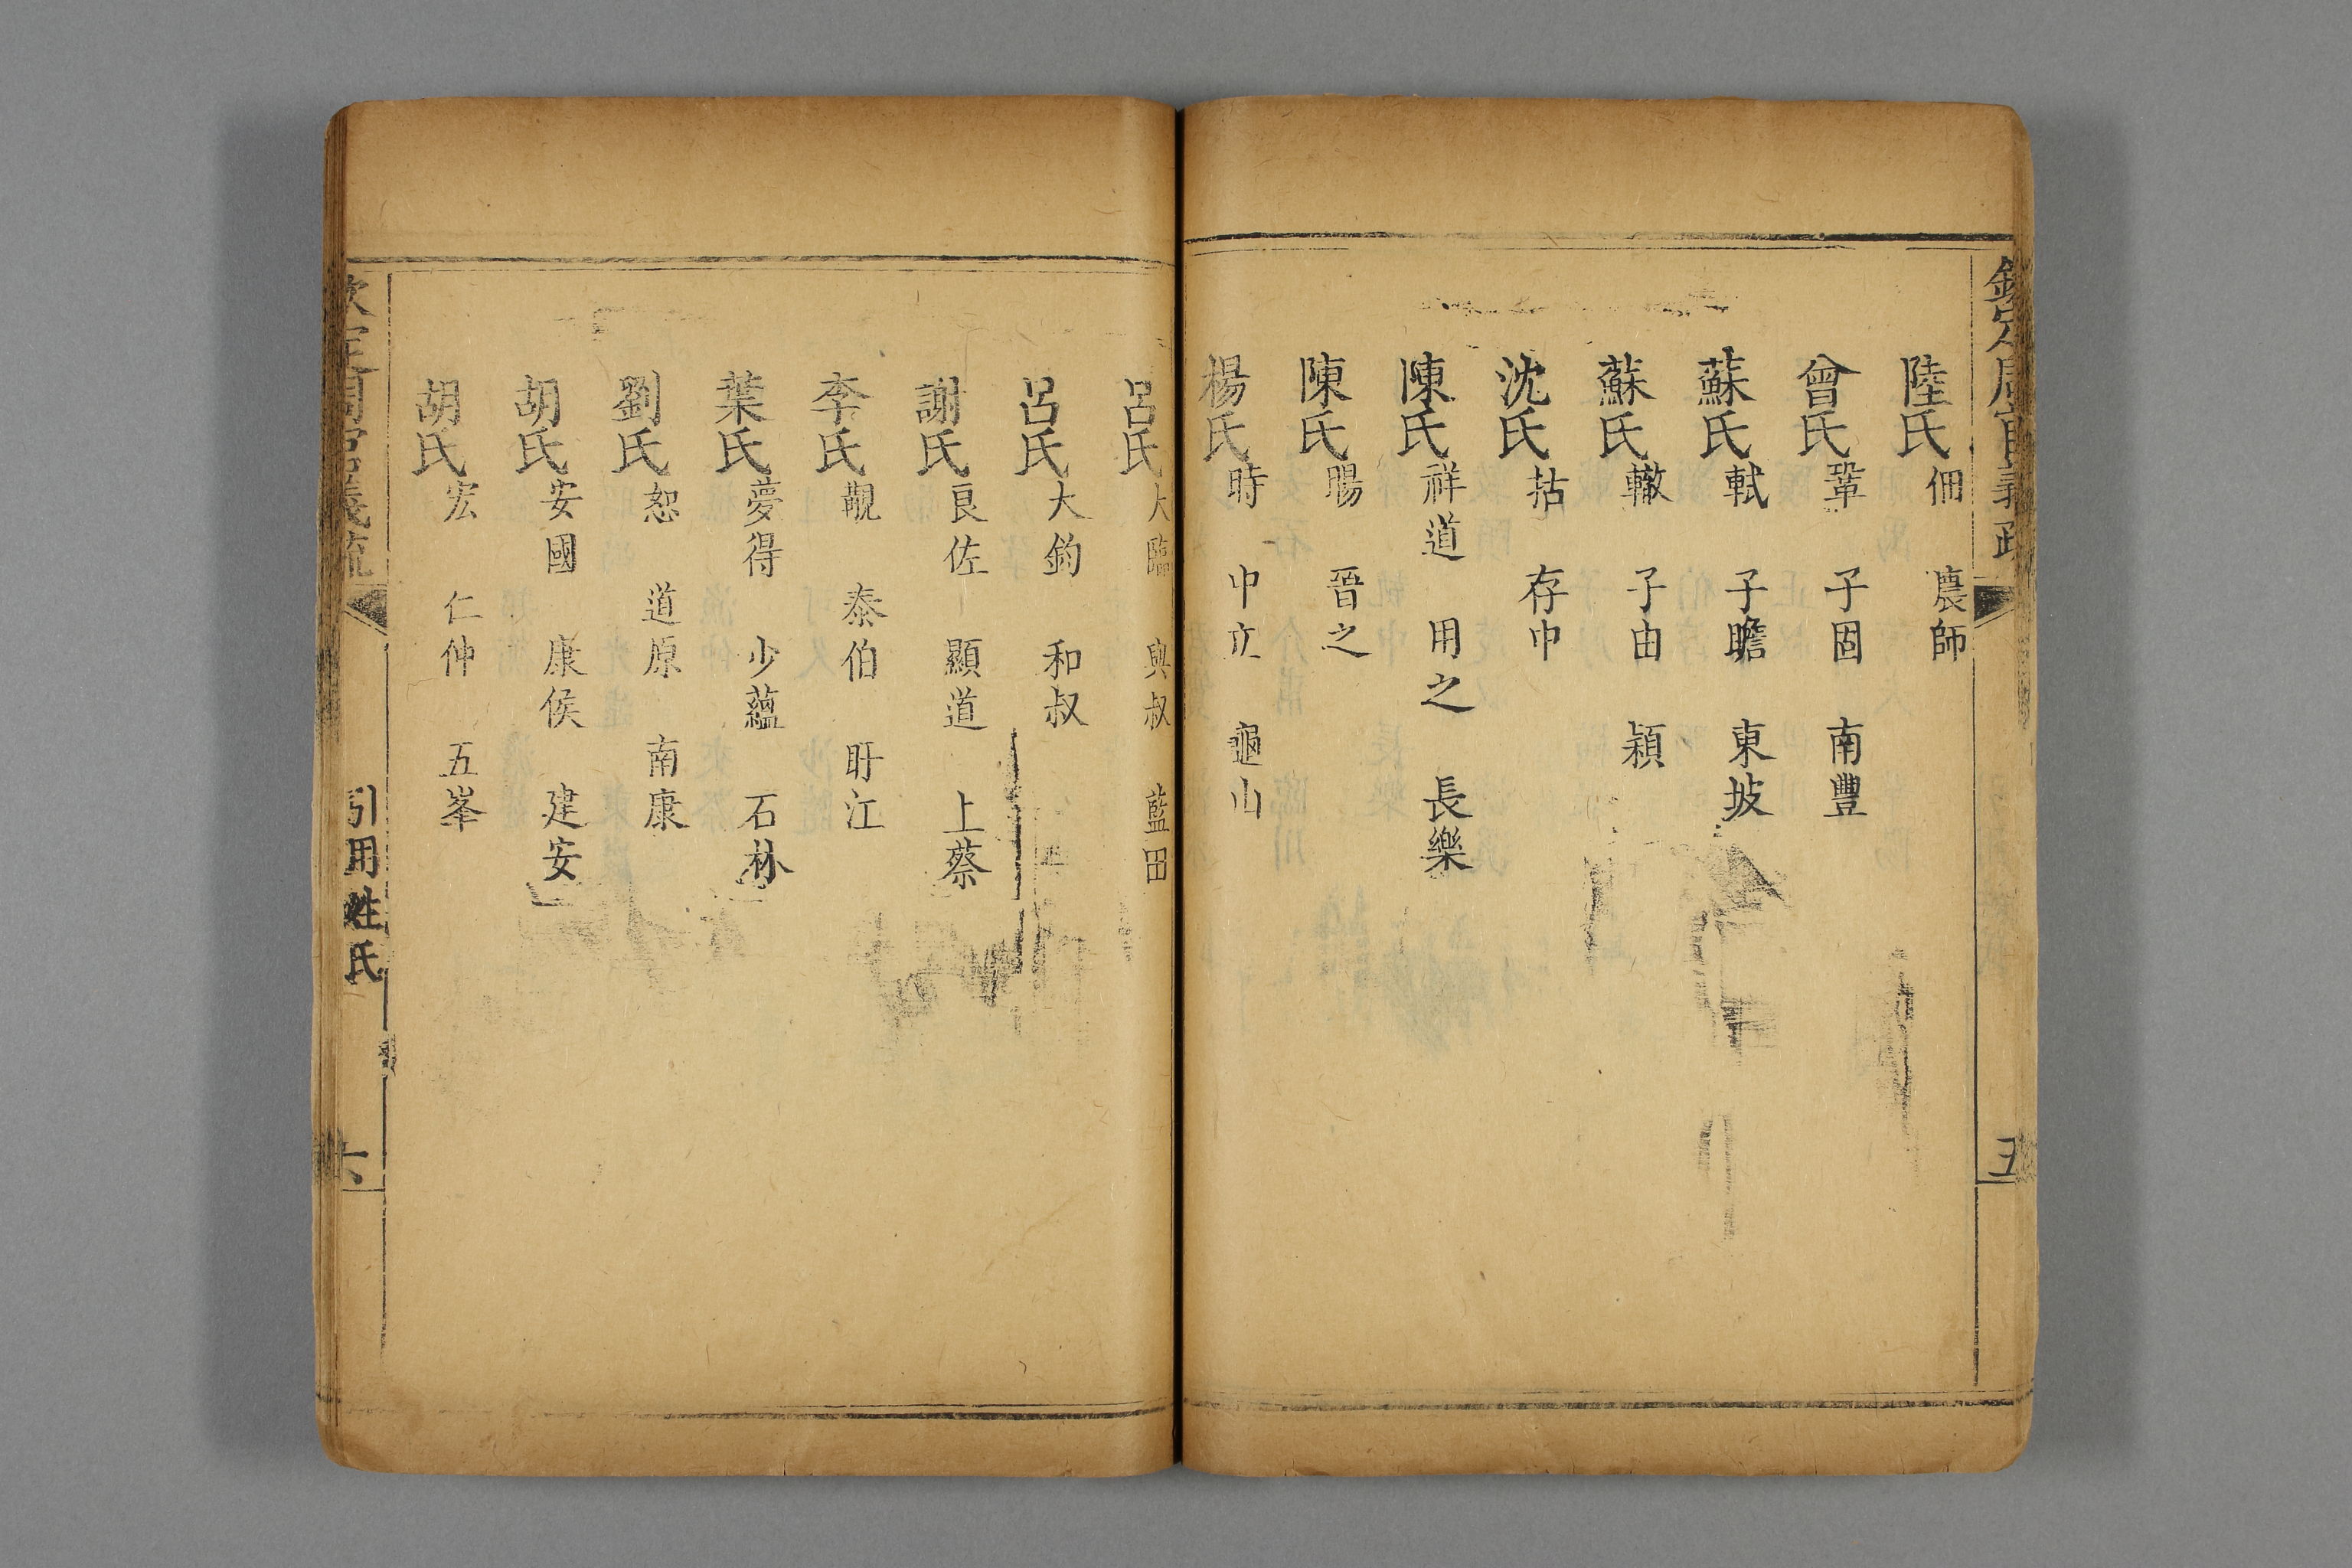 欽定周官義疏
五
陸氏佃 農師
曾氏鞏 子固 南豐
蘇氏軾 子瞻 東坡
蘇氏轍 子由 潁
沈氏括 存中
陳氏祥道 用之 長樂
陳氏暘 晉之
楊氏時 中立 龜山
呂氏大臨 與叔 藍田
呂氏大鈞 和叔
謝氏良佐 顯道 上蔡
李氏覯 泰伯 盱江
葉氏夢得 少蘊 石林
劉氏恕 道原 南康
胡氏安國 康侯 建安
胡氏宏 仁仲 五峯
欽定周官義疏
引用姓氏
六